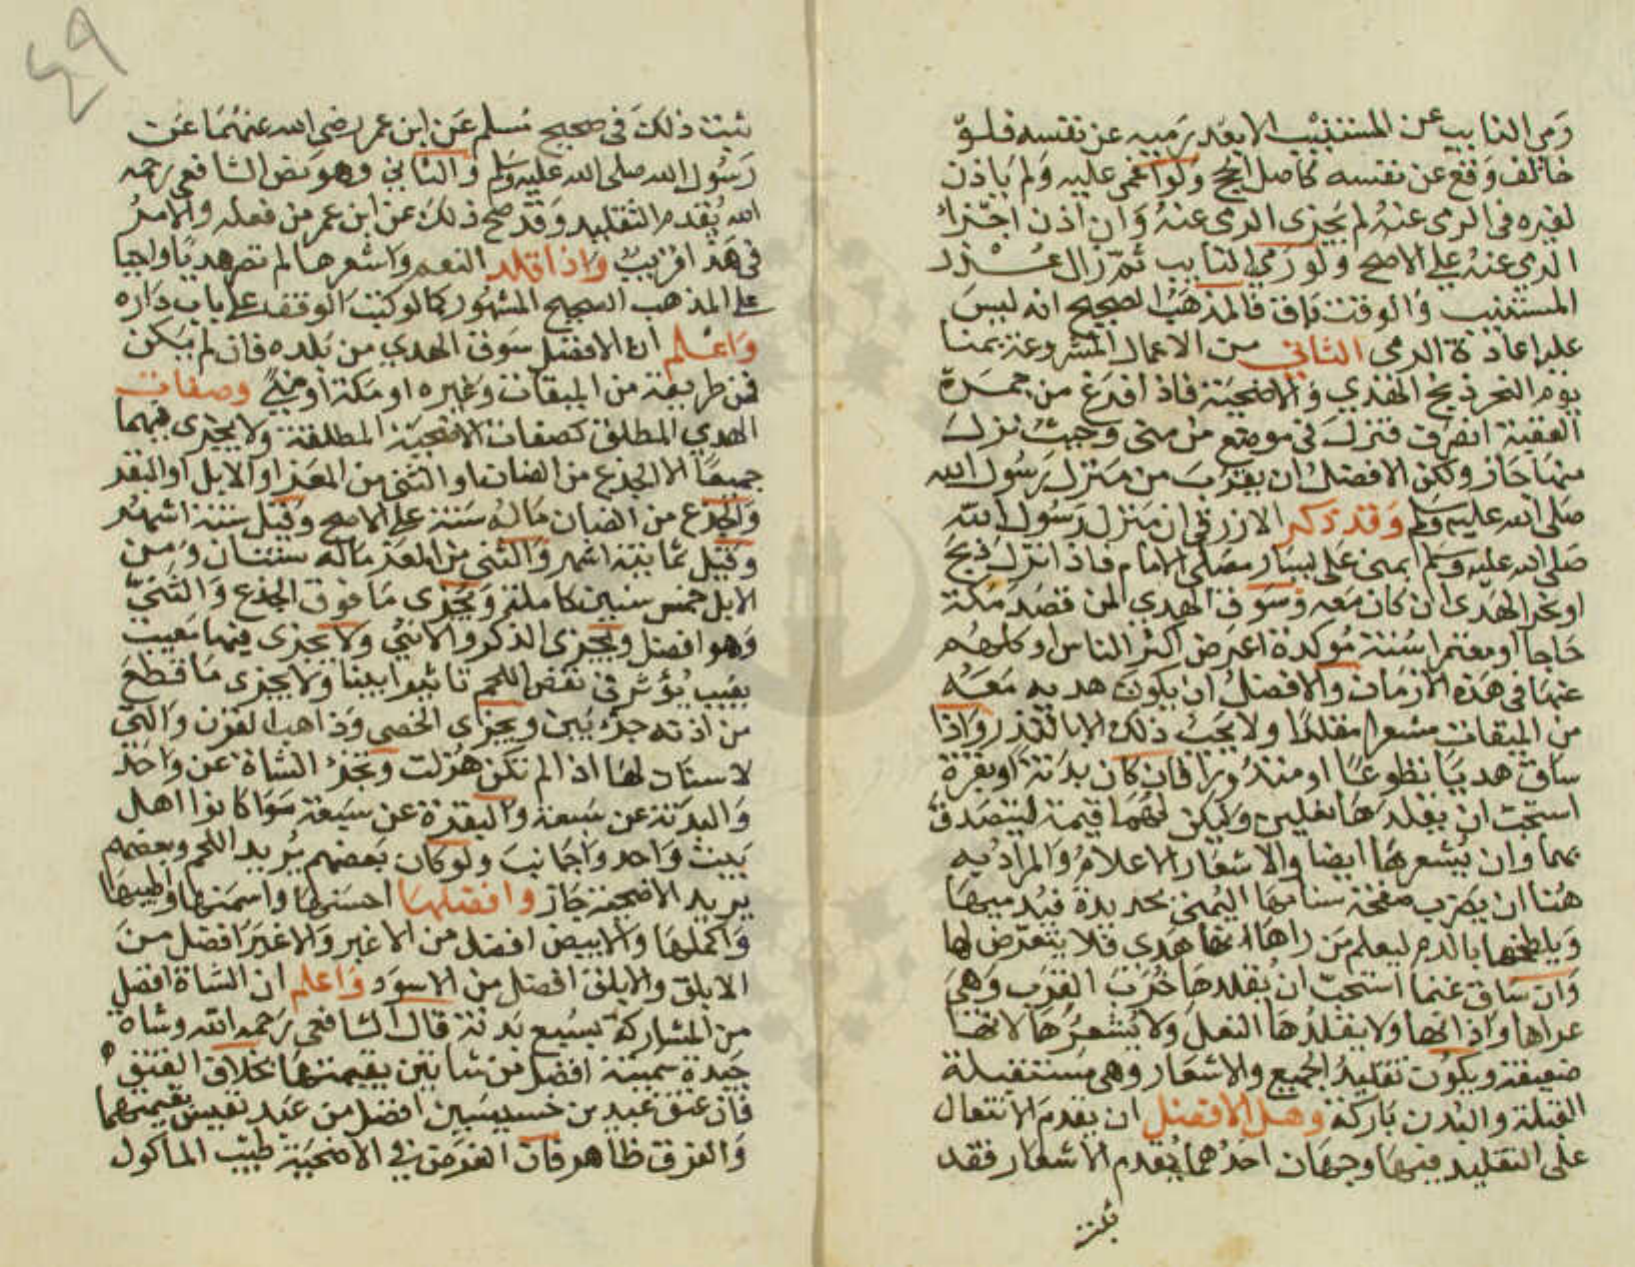 رمي النايب عن المستنيب الا بعد رميه عن نفسه فلو
خالف وقع عن نفسه كاصل الحج ولو اغمي عليه ولم ياذن
لغيره في الرمي عنه لم يجزي الرمي عنه وان اذن اجزاه
الرمي عنه علي الاصح ولو رمي النايب ثم زال عذر
المستنيب والوقت باق فالمذهب الصحيح انه ليس
عليه اعادة الرمي الثاني من الاعمال المشروعة بمنا
يوم النحر ذبح الهدي والاضحية فاذا فرغ من جمرة
العقبة انصرف فنزل في موضع من منى وحيث نزل
منها جاز ولكن الافضل ان يقرب من منزل رسول الله
صلى الله عليه وسلم وقد ذكر الازرقي ان منزل رسول الله
صلى الله عليه وسلم بمنى على يسار مصلى الامام فاذا نزل ذبح
او نحر الهدى ان كان معه وسوق الهدي لمن قصد مكة
حاجا او معتمرا سنة موكدة اعرض اكثر الناس او كلهم
عنها في هذه الازمان والافضل ان يكون هديه معه
من الميقات مشعرا مقلدا ولا يجب ذلك الا بالنذر واذا
ساق هديا تطوعا او منذورا فان كان بدنة او بقرة
استحب ان يقلدها نعلين وليكن لهما قيمة ليتصدق
بهما وان يشعرها ايضا والاشعار الاعلام والمراد به
هنا ان يضرب صفحة سنامها اليمنى بحديدة فيدميها
ويلطخها بالدم ليعلم من راها انها هدى فلا يتعرض لها
وان ساق غنما استحب ان يقلدها خرب القرب وهي
عراها واذانها ولا يقلدها النعل ولا يشعرها لانها
ضعيفة ويكون تقليد الجميع والاشعار وهي مستقبلة
القبلة والبدن باركة وهل الافضل ان يقدم الاشعار
على التقليد فيها وجهان احدهما يقدم الاشعار فقد
ثبت
٤٩
ثبت ذلك في صحيح مسلم عن ابن عمر رضي الله عنهما عن
رسول الله صلى الله عليه وسلم والثاني وهو نص الشافعي رحمه
الله يقدم التقليد وقد صح ذلك عن ابن عمر من فعله والامر
في هذا قريب واذا قلد النعم واشعرها لم تصر هديا واجبا
علي المذهب الصحيح المشهور كما لو كتب الوقف على باب داره
واعلم ان الافضل سوق الهدي من بلده فان لم يكن
فمن طريقه من الميقات وغيره او مكة او منى وصفات
الهدي المطلق كصفات الاضحية المطلقة ولا يجزى فيهما
جميعا الا الجذع من الضان او الثني من المعز او الابل او البقر
والجذع من الضان ماله سنة على الاصح وقيل ستة اشهر
وقيل ثمانية اشهر والثني من المعز ماله سنتان ومن
الابل خمس سنين كاملة ويجزى ما فوق الجذع والثني
وهو افضل ويجزى الذكر والانثي ولا يجزى فيهما معيب
بعيب يؤثر في نقص اللحم تاثيرا بينا ولا يجزى ما قطع
من اذنه جزء بين ويجزى الخصي وذاهب القرن والتي
لا سنان لها اذا لم تكن هزلت وتجزء الشاة عن واحد
والبدنة عن سبعة والبقرة عن سبعة سوا كانوا اهل
بيت واحد واجانب ولو كان بعضهم يريد اللحم وبعضهم
يريد الاضحية جاز وافضلها احسنها واسمنها واطيبها
واكملها والابيض افضل من الاغبر والاغبر افضل من
الابلق والابلق افضل من الاسود واعلم ان الشاة افضل
من المشاركة بسبع بدنة قال الشافعي رحمه الله وشاة
جيدة سمينة افضل من شاتين بقيمتها بخلاف العتق
فان عتق عبدين خسيسين افضل من عبد نفيس بقيمتهما
والفرق ظاهر فان الغرض في الاضحية طيب الماكول